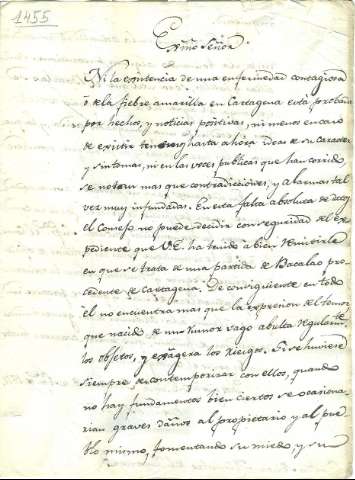 1455
Exmo Señor
Ni la existencia de una enfermedad contagiosa
ó de la fiebre amarilla en Cartagena está probada
por hechos, y noticias positivas, ni menos en caso
de existir tenemos hasta ahora ideas de su caracter
y sintomas, ni en las voces publicas que han corrido
se notan mas que contradicciones, y alarmas tal
vez muy infundadas. En esta falta absoluta de datos
el Consejo no puede decidir con seguridad del Ex-
pediente que V.E. ha tenido a bien remitirle
en que se trata de una partida de Bacalao pro-
cedente de Cartagena. De consiguiente en todo
el no encuentra mas que la expresion del temor
que nacido de un rumor vago abulta regularmte
los objetos, y exagera los riesgos. Si se huviere
siempre de contemporizar con ellos, quando
no hay fundamentos bien ciertos se ocasiona-
rian graves daños al propietario y al pue-
blo mismo, fomentando su miedo, y su